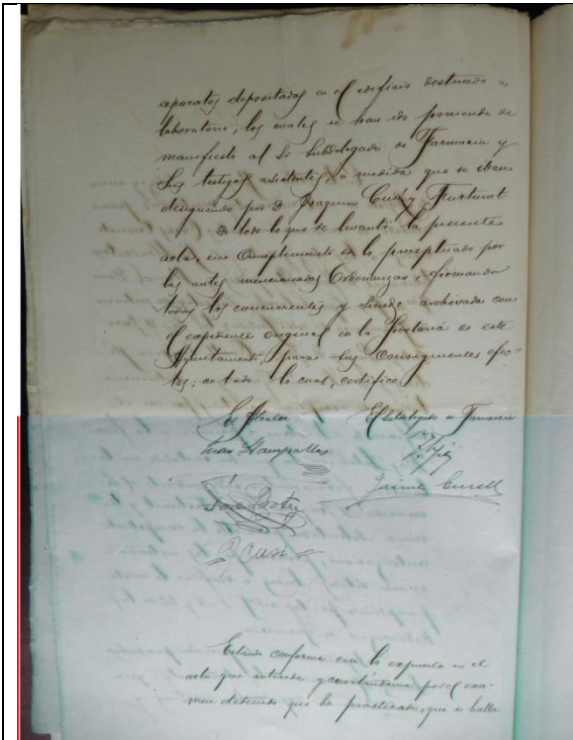 aparatos depositados en el edificio destinado a
laboratorio, los cuales se han ido poniendo de
manifiesto al Sr Subdelegado de Farmacia y
los testigos asistentes a medida que se iban
designando por D. Joaquin Cusí y Furtunet
De todo lo que se levanta la presente
acta en cumplimiento de lo preceptuado por
las antes mencionadas Ordenanzas, firmando
todos los concurrentes y siendo archivada con
el expediente original en la Secretaría de este
Ayuntamiento, para los consiguientes efec=
tos; de todo lo cual, certifico.
El Alcalde El Subdelegado de Farmacia
Juan
Jaime Curell
J Cusí
Estando conforme con lo expuesto en el
acta que antecede y por el exa-
men detenido que he practicado, que se halla